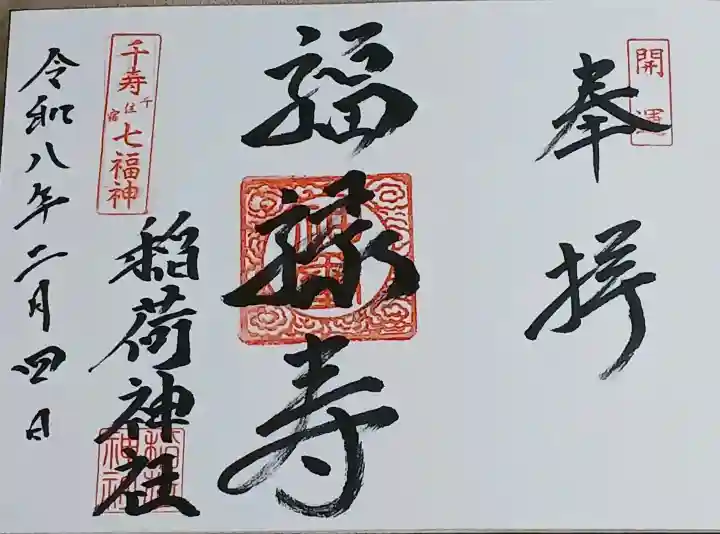 開運
奉拝
福禄寿
千寿七福神
千住宿
稲荷神社
令和八年二月四日